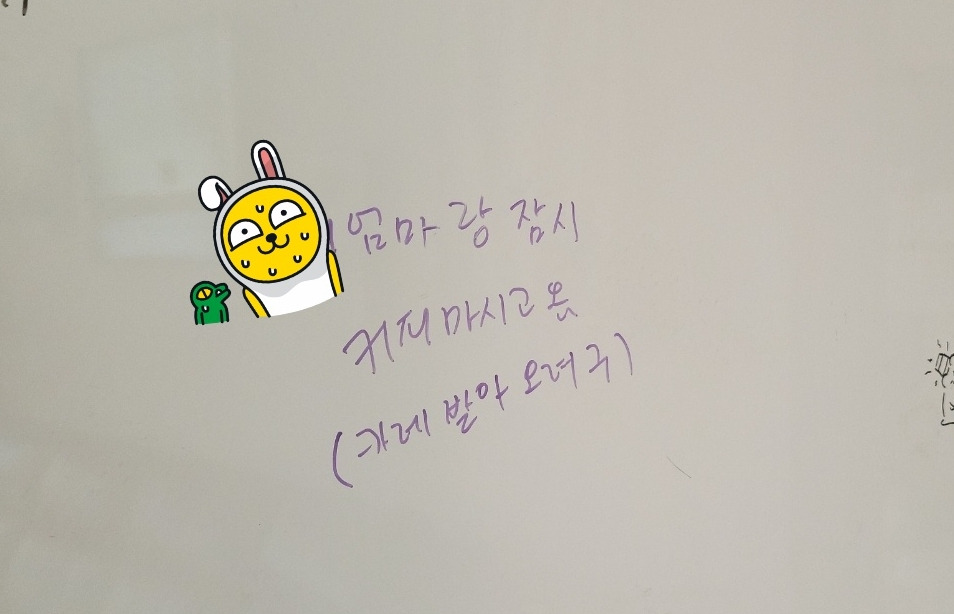 엄마랑 잠시
커피마시고 옴
(카레 받아 오려구)